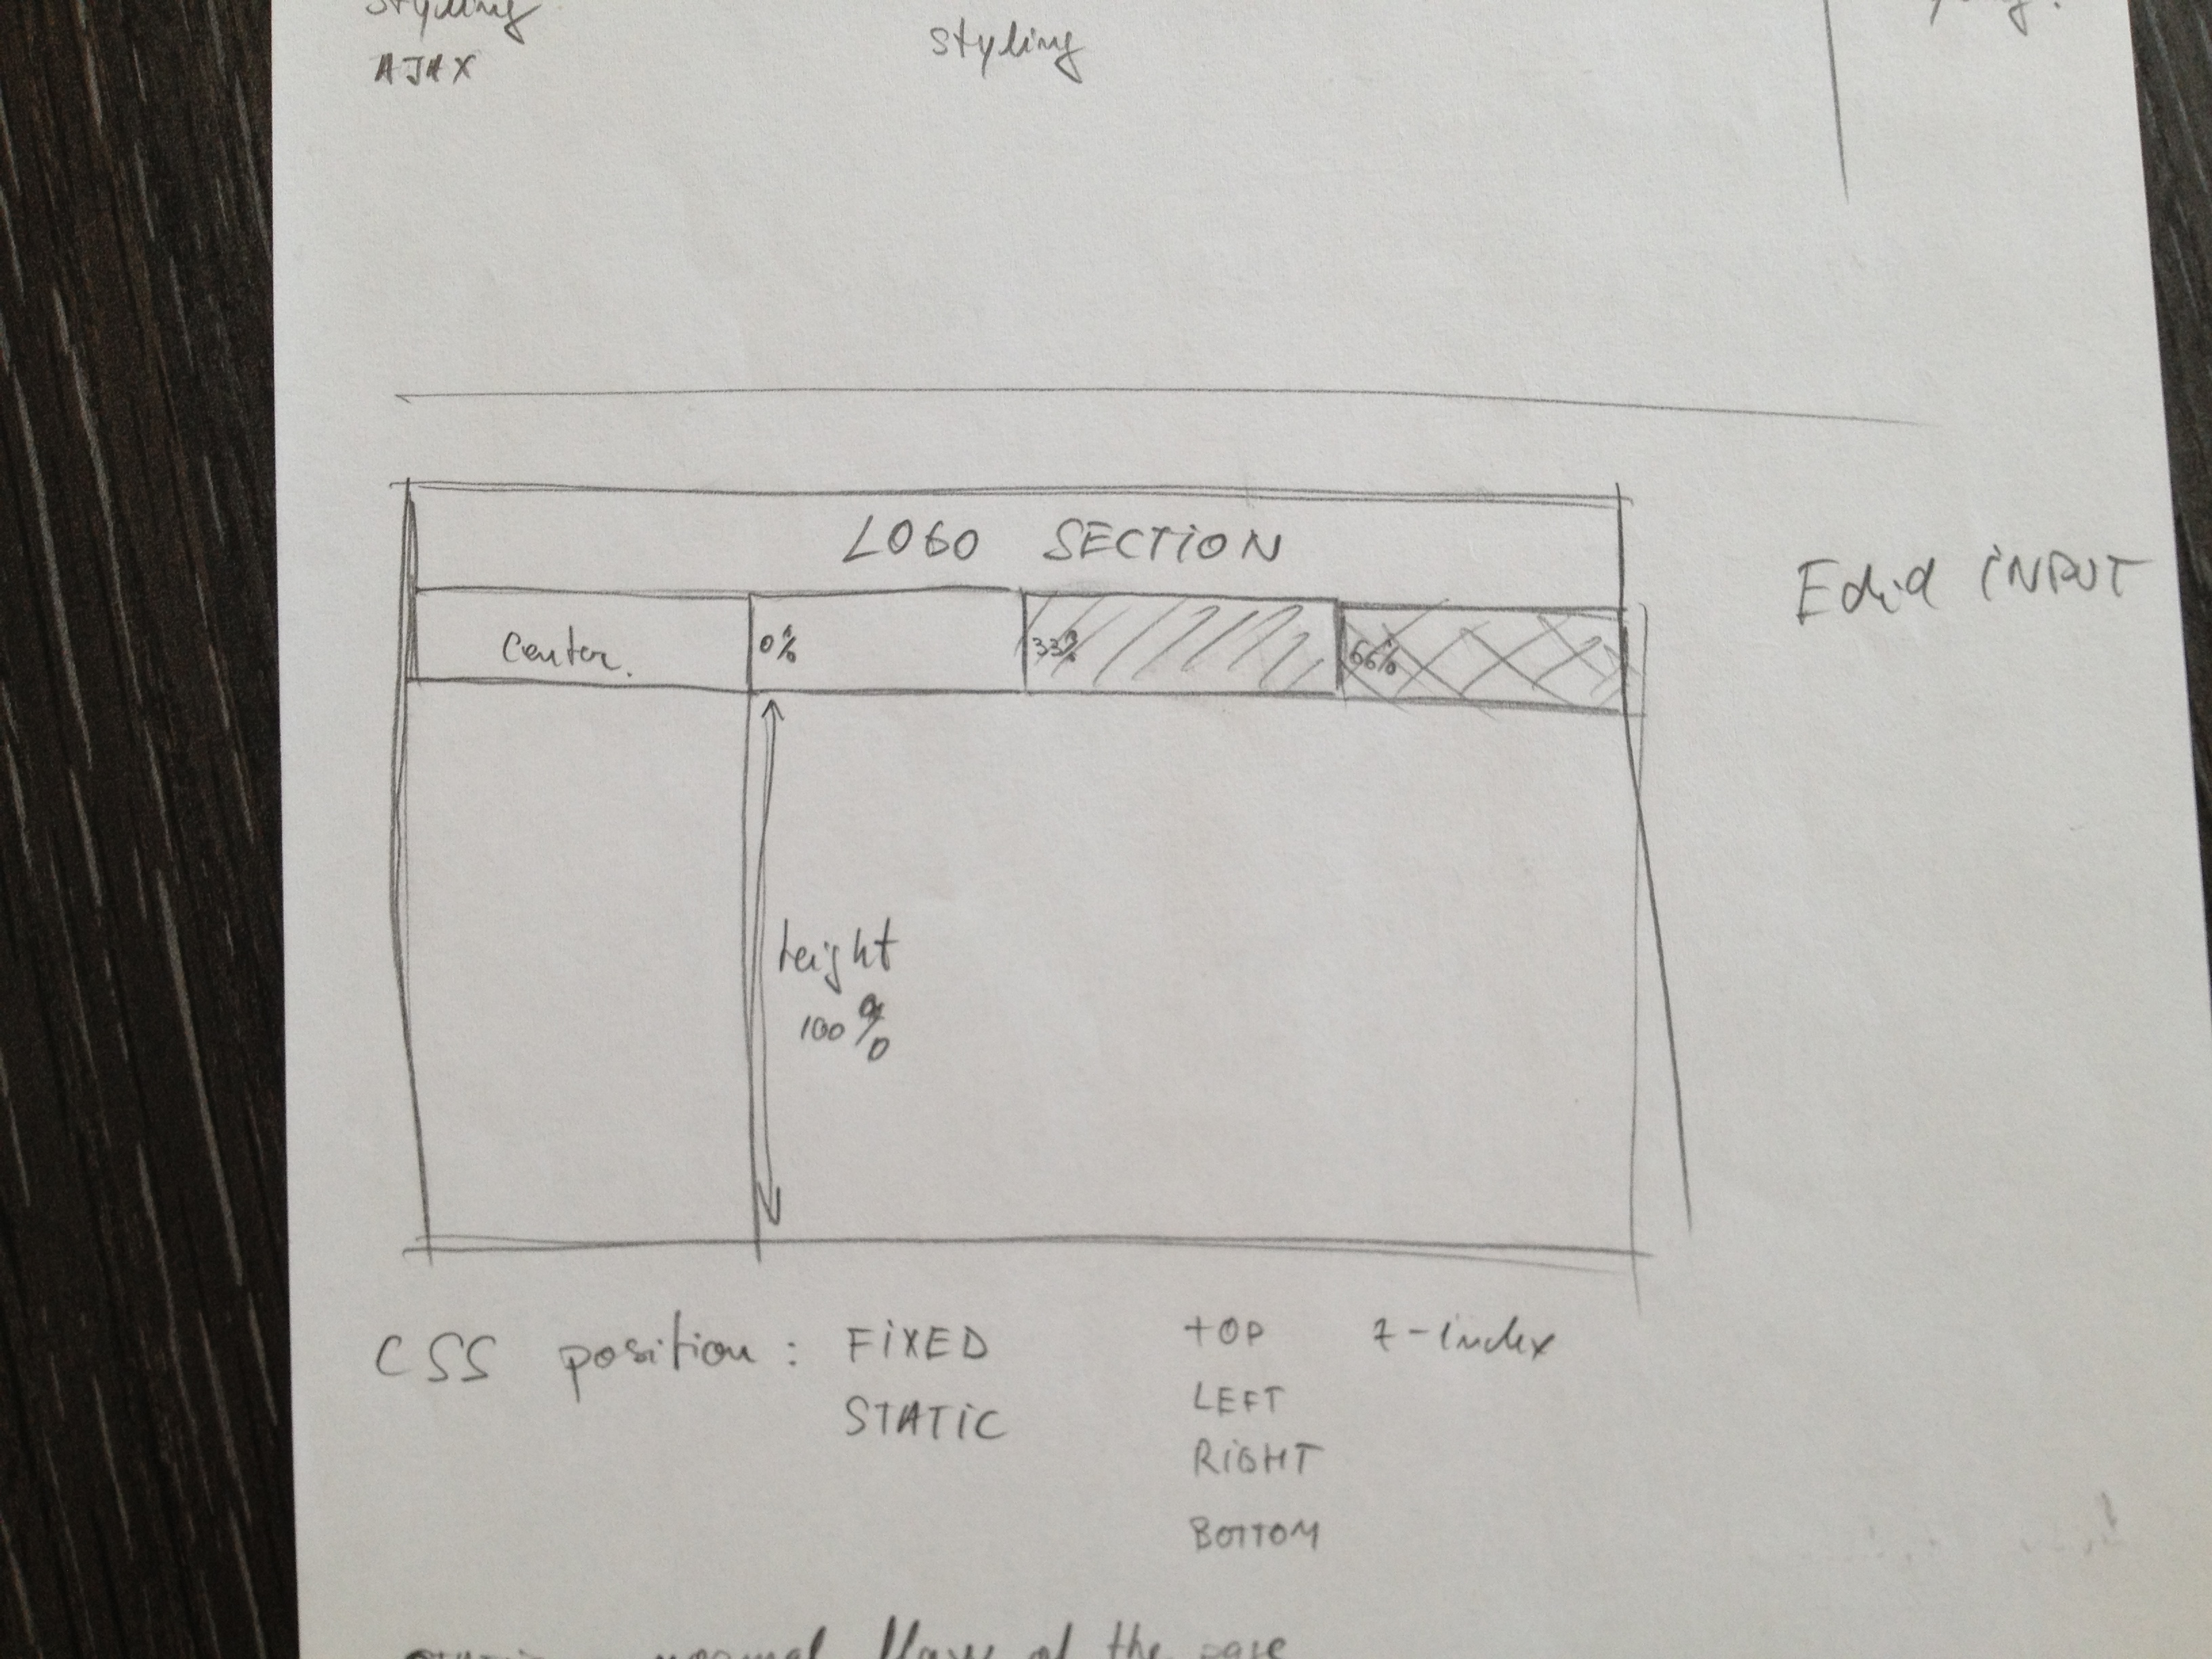 styling
AJAX
styling
LOGO SECTION
Edid INPUT
Center.
0%
33%
66%
height
100%
CSS position: FIXED
STATIC
TOP
LEFT
RIGHT
BOTTOM
z-index
normal flow of the page